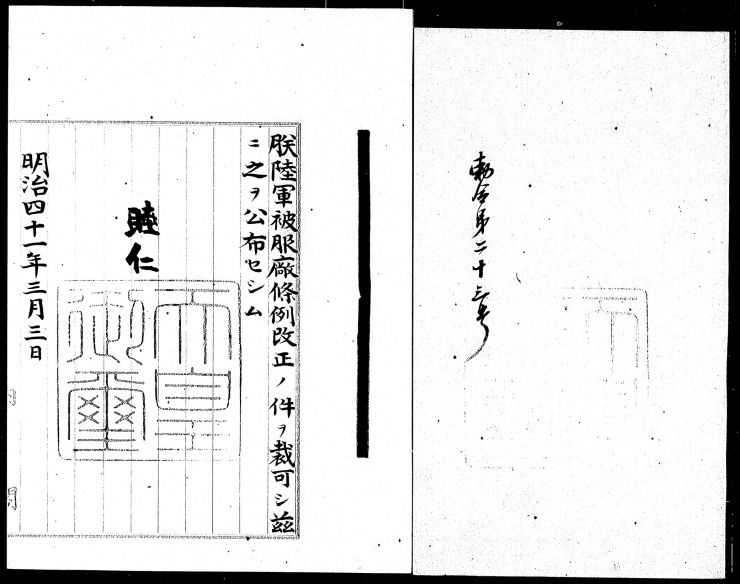 勅令第二十三号
朕陸軍被服廠條例改正ノ件ヲ裁可シ茲
ニ之ヲ公布セシム
睦仁
天皇御璽
明治四十一年三月三日